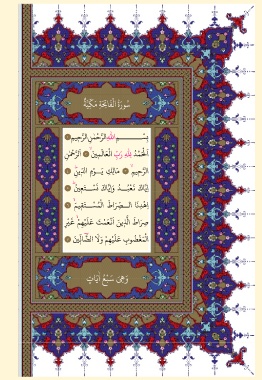 سُورَةُ الْفَاتِحَةِ مَكِّيَّةٌ
بِسْمِ اللهِ الرَّحْمٰنِ الرَّحِيمِ
اَلْحَمْدُ لِلّٰهِ رَبِّ الْعَالَمِينَ اَلرَّحْمٰنِ
الرَّحِيمِ مَالِكِ يَوْمِ الدِّينِ
اِيَّاكَ نَعْبُدُ وَاِيَّاكَ نَسْتَعِينُ
اِهْدِنَا الصِّرَاطَ الْمُسْتَقِيمَ
صِرَاطَ الَّذِينَ اَنْعَمْتَ عَلَيْهِمْ غَيْرِ
الْمَغْضُوبِ عَلَيْهِمْ وَلَا الضَّالِّينَ
وَهِيَ سَبْعُ اٰيَاتٍ